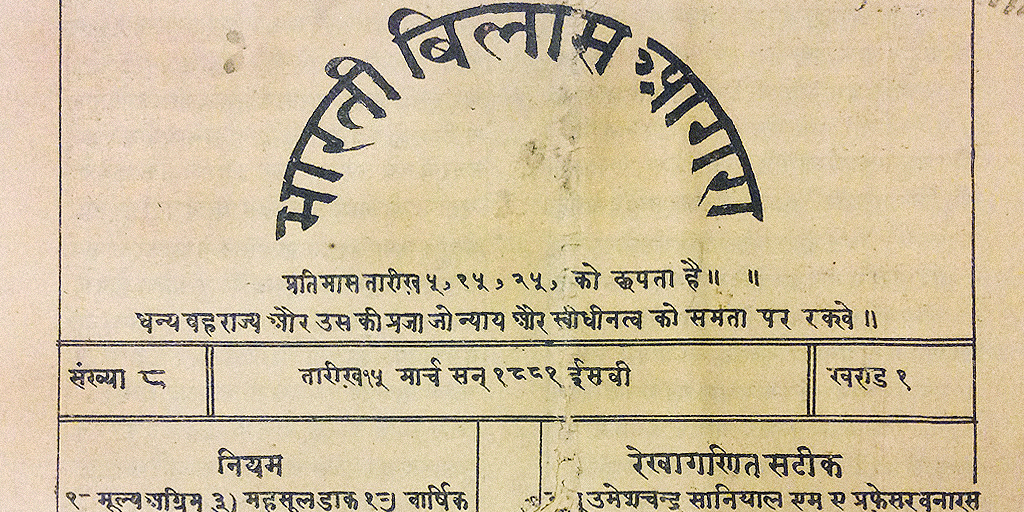 भारती बिलास आगरा
प्रतिमास तारीख़ ५, १५, २५, को छपता है॥ ॥
धन्य वह राज्य और उस की प्रजा जो न्याय और स्वाधीनत्व को समता पर रक्वे॥
संख्या ८
तारीख़ १५ मार्च सन् १८८१ ईसवी
खण्ड १
नियम
रेखागणित सटीक
१- मूल्य अग्रिम ३) महसूल डाक १॥) वार्षिक
उमेशचन्द्र सानियाल एम ए प्रफेसर बनारस